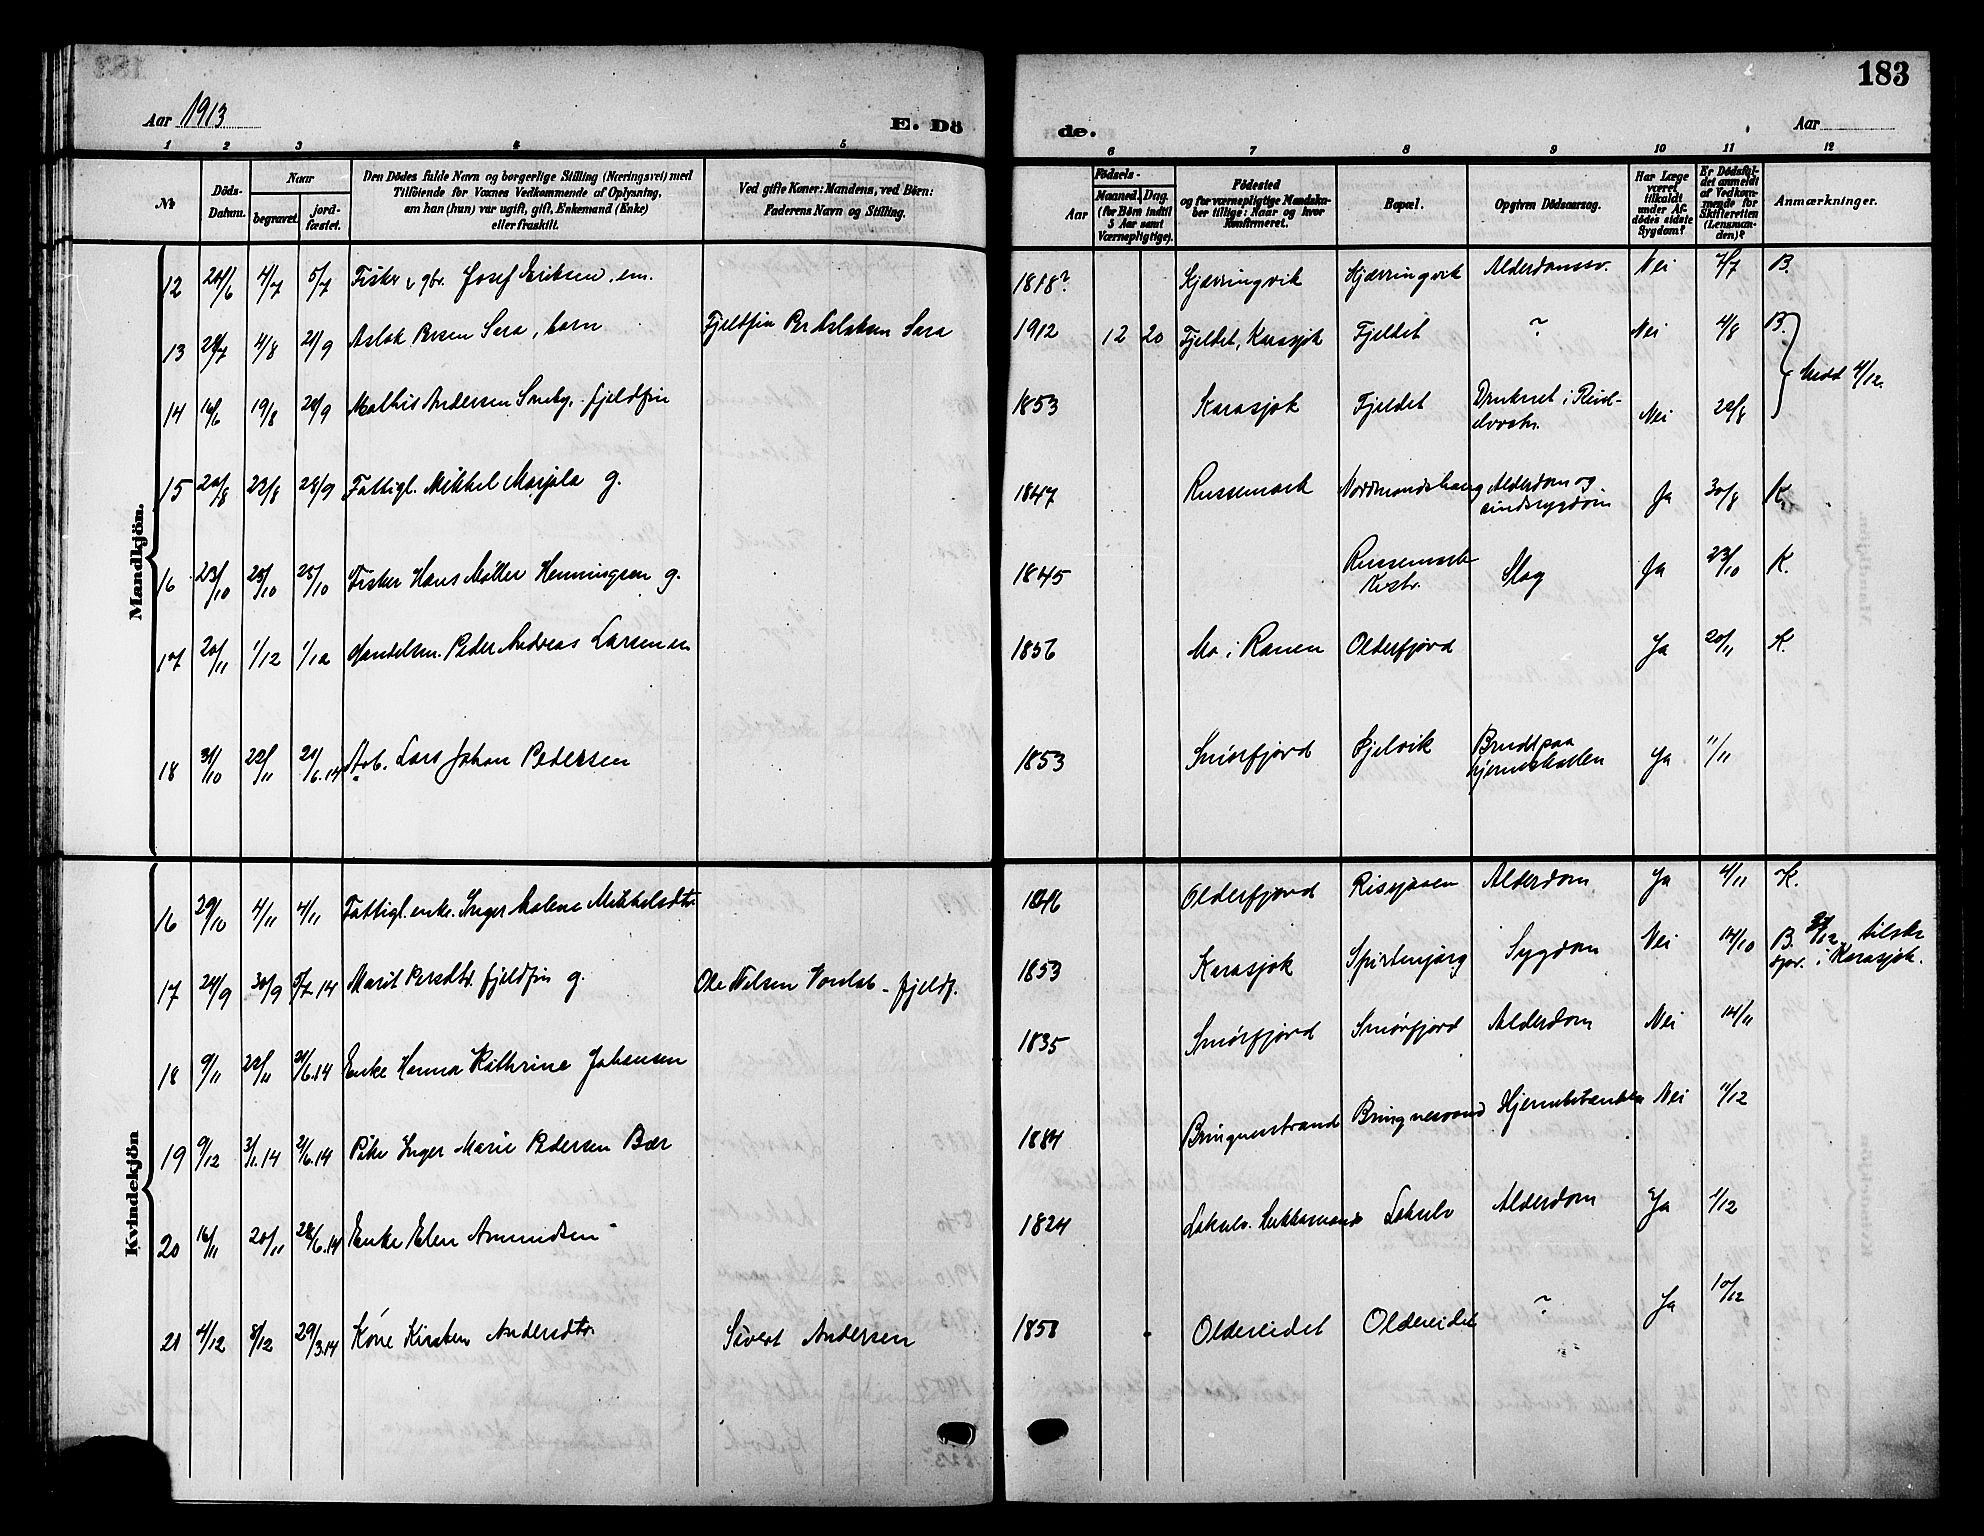 183
Aar 1913
E. Dö
de.
Aar
1 2 3 4 5 6 7 8 9 10 11 12
№
Döds-
Datum.
Naar
begravet.
jord-
fæstet.
Den Dödes fulde Navn og borgerlige Stilling (Næringsvei) med
Tilföiende for Voxnes Vedkommende af Oplysning,
om han (hun) var ugift, gift, Enkemand (Enke)
eller fraskilt.
Ved gifte Koner: Mandens, ved Börn:
Faderens Navn og Stilling.
Födsels-
Aar
Maaned.
Dag.
(for Börn indtil
3 Aar samt
Værnepligtige).
Födested
og for værnepligtige Mandska-
ber tillige: Naar og hvor
Konfirmeret.
Bopæl.
Opgiven Dödsaarsag.
Har Læge
været
tilkaldt
under Af-
dödes sidste
Sygdom?
Er Dödsfal-
det anmeldt
af Vedkom-
mende for
Skifteretten
(Lensman-
den)?
Anmærkninger.
Mandkjön.
12 4/7 5/7 Fisker & gbr. Josef Eriksen, em. 1818? Kjærringvik Kjærringvik Alderdomssv. Nei 4/7 B.
13 4/8 Aslak Persen Sara, barn Fjeldfin Per Aslaksen Sara 1912 12 20 Fjeldet, Karasjok Fjeldet ? Nei 4/8 B.
Medd 4/12.
14 19/8 28/9 Mathis Andersen fjeldfin 1853 Karasjok Fjeldet Druknet i Nei 22/8
15 20/8 23/8 28/9 Fattigl. Mikkel Marjala g. 1847 Russemark Alderdom og
sindssygdom Ja 30/8 K.
16 23/10 25/10 25/10 Fisker Hans Møller Henningsen g. 1845 Slag Ja 23/10 K.
17 20/11 1/12 1/12 Handelsm. Peder Andreas Larsen 1856 Mo i Ranen Olderfjord Ja 20/11 K.
18 31/10 22/11 21/6.14 Arb. Lars Johan Pedersen 1853 Smørfjord Brudt paa
hjerneskallen Ja 11/11
Kvindekjön
16 29/10 4/11 4/11 Fattigl. enke. Inger Malene Mikkelsdtr. 1846 Olderfjord Alderdom Ja 4/11 K.
17 24/9 30/9 5/7.14 Marit Persdtr. fjeldfin g. Ole Nilsen fjeldf. 1853 Karasjok Spirtenjarg Sygdom Nei 14/10 B.
i Karasjok.
18 9/11 22/11 21/6.14 Enke Hanna Kathrine Johansen 1835 Smørfjord Smørfjord Alderdom Nei 14/11
19 9/12 3/1.14 21/6.14 Pike Inger Marie Pedersen Bær 1884 Bringnesstrand Nei 11/12
20 16/11 20/11 28/6.14 Enke Elen Amundsen 1824 Lakselv Alderdom Ja 1/12
21 4/12 8/12 29/3.14 Kone Kirsten Andersdtr. Sivert Andersen 1858 Oldereidet Oldereidet ? Ja 10/12